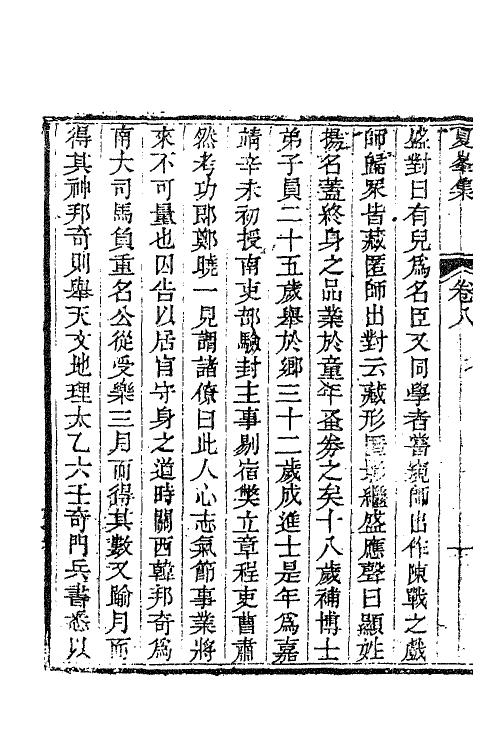 夏峯集 卷八
盛對曰有兒爲名臣又同學者嘗窺師出作陳戰之戲
師歸眾皆藏匿師出對云藏形匿影繼盛應聲曰顯姓
揚名蓋終身之品業於童年蚤券之矣十八歲補博士
弟子員二十五歲舉於鄉三十二歲成進士是年爲嘉
靖辛未初授南吏部驗封主事剔宿獘立章程吏曹肅
然考功郎鄭曉一見謂諸僚曰此人心志氣節事業將
來不可量也因告以居官守身之道時關西韓邦奇爲
南大司馬負重名公從受樂三月而得其數又踰月而
得其神邦奇則舉天文地理太乙六壬奇門兵書悉以